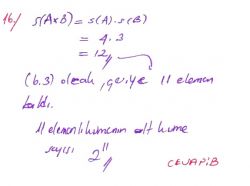 16/ s(AxB) = s(A).s(B)
= 4.3
= 12//
(6.3) olcak, geriye 11 eleman
kaldı.
11 elemanlı kümenin alt küme
sayısı 2¹¹//
CEVAP:B